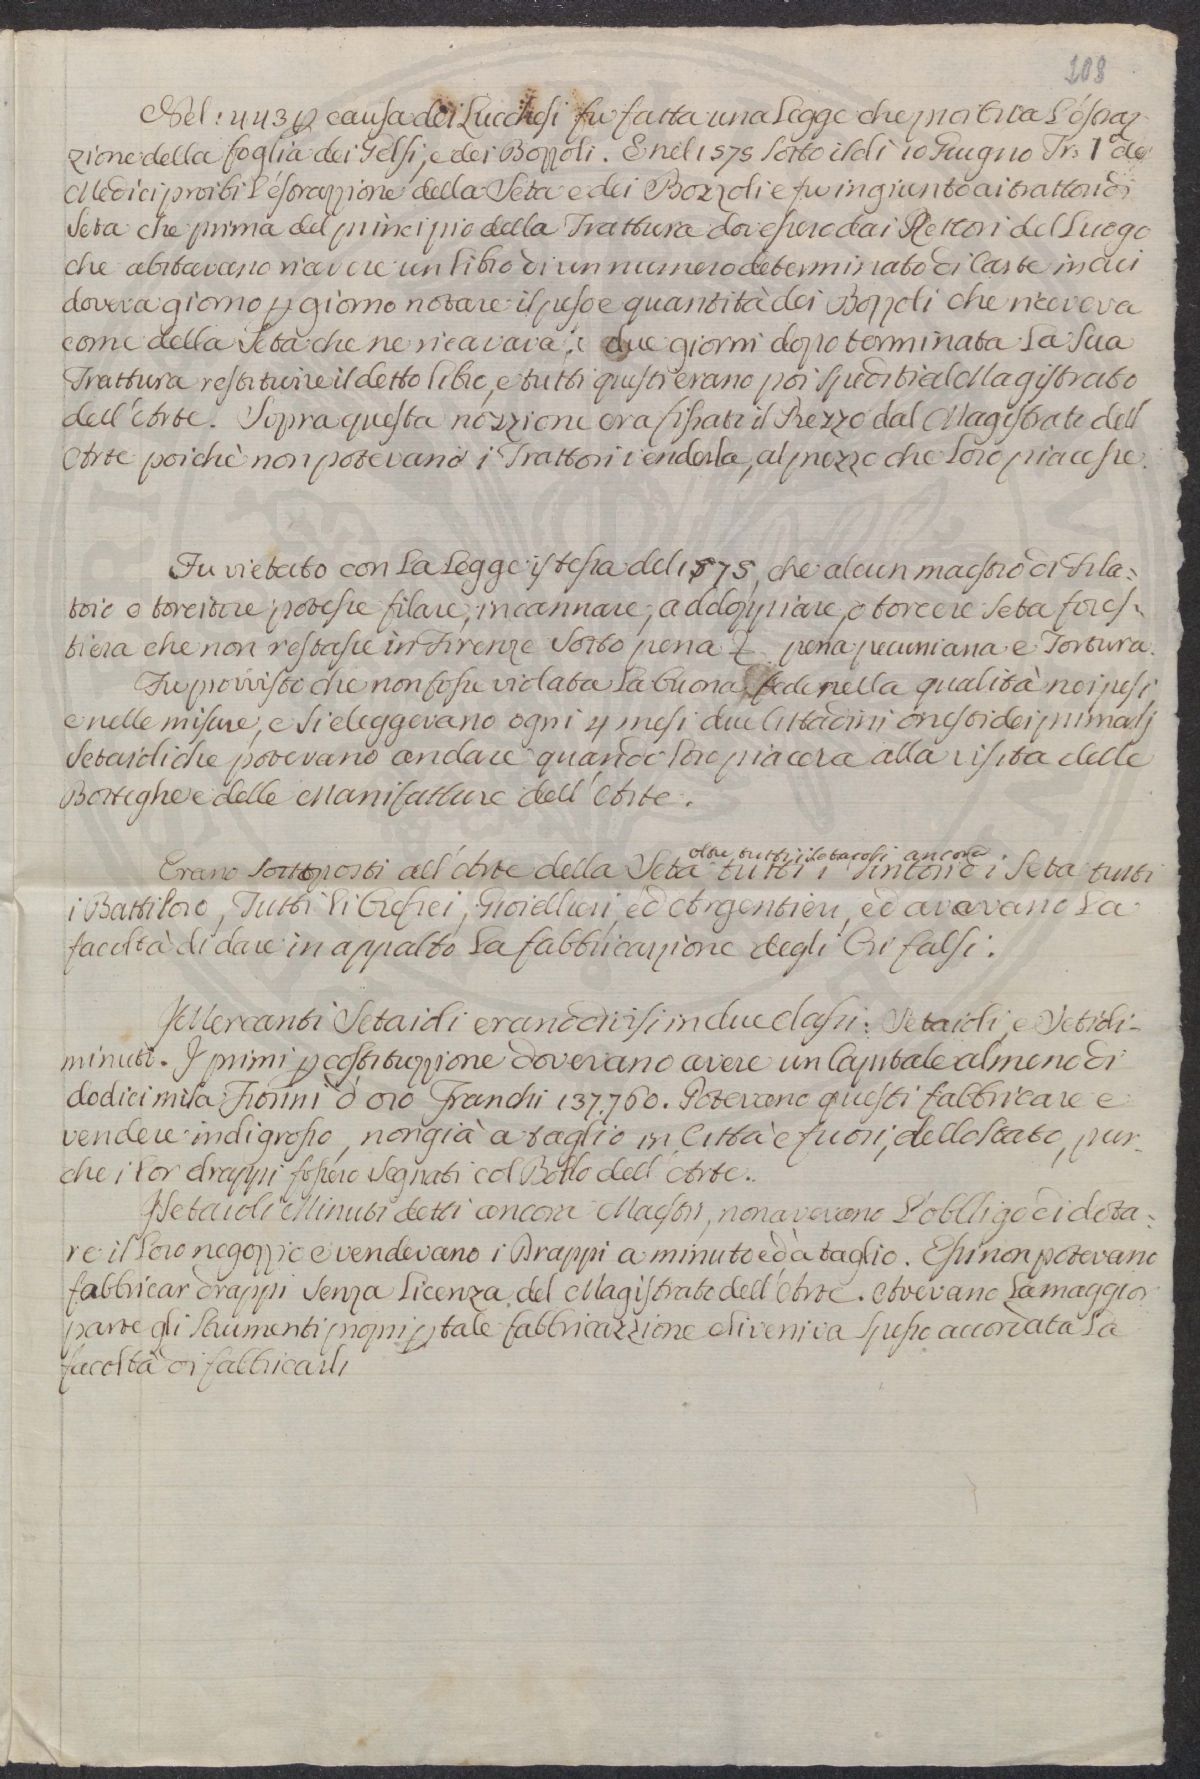 208
Nel 1443 p causa dei Lucchesi fu fatta una Legge che proibiva l'éstraz-
zione della foglia dei Gelsi, e dei Bozzoli. E nel 1575 sotto il dì 10 Giugno Fr: 1º dei
Medici proibì l'éstrazzione della Seta e dei Bozzoli e fu ingiunto ai trattori di
Seta che prima del principio della Trattura dovessero dai Rettori del Luogo
che abitavano ricevere un libro di un numero determinato di Carte in cui
doveva giorno p giorno notare il peso e quantità dei Bozzoli che riceveva
come della Seta che ne ricavava, e due giorni dopo terminata la sua
Trattura restituire il detto libro, e tutti questi erano poi spediti al Magistrato
dell'Arte. Sopra questa nozzione era fissato il Prezzo dal Magistrato dell
Arte poichè non potevano i Trattori venderla, al prezzo che loro piacesse.
Fu vietato con la Legge istessa del 1575, che alcun maestro di Fila=
toio o torcitore potesse filare, incannare, addoppiare, o torcere seta fores-
tiera che non restasse in Firenze sotto pena pena pecuniaria e Tortura.
Fu provvisto che non fosse violata la buona fede nella qualità nei pesi
e nelle misure, e si eleggevano ogni 4 mesi due Cittadini onesti dei primarj
Setaioli che potevano andare quando loro piaceva alla visita delle
Botteghe e delle Manifatture dell'Arte.
oltre tutti i setaioli ancora
Erano sottoposti all'Arte della Seta tutti i Tintori di Seta tutti
i Battiloro, Tutti li Orefici, Gioiellieri, ed Argentieri, ed avevano la
facoltà di dare in appalto la fabbricazzione degli Ori falsi.
I Mercanti Setaioli erano divisi in due classi: Setaioli, e Setaioli-
minuti. I primi p costituzzione dovevano avere un Capitale almeno di
dodici mila Fiorini d'oro Franchi 137.760. Potevano questi fabbricare e
vendere indigrosso, non già a taglio in Città e fuori, dello Stato, pur-
che i lor drappi fossero segnati col Bollo dell'Arte.
I Setaioli Minuti detti ancora Maestri, non avevano l'obbligo di dota=
re il loro negozzio e vendevano i Drappi a minuto ed à taglio. Essi non potevano
fabbricar drappi senza licenza del Magistrato dell'Arte. Avevano la maggior
parte gli strumenti proprj p tale fabbricazzione e li veniva spesso accordata la
facoltà di fabbricarli